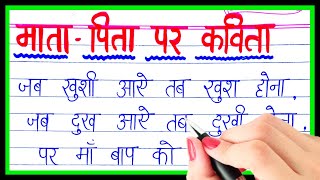 माता-पिता पर कविता
जब खुशी आये तब खुश होना,
जब दुख आये तब दुखी होना,
पर माँ बाप को